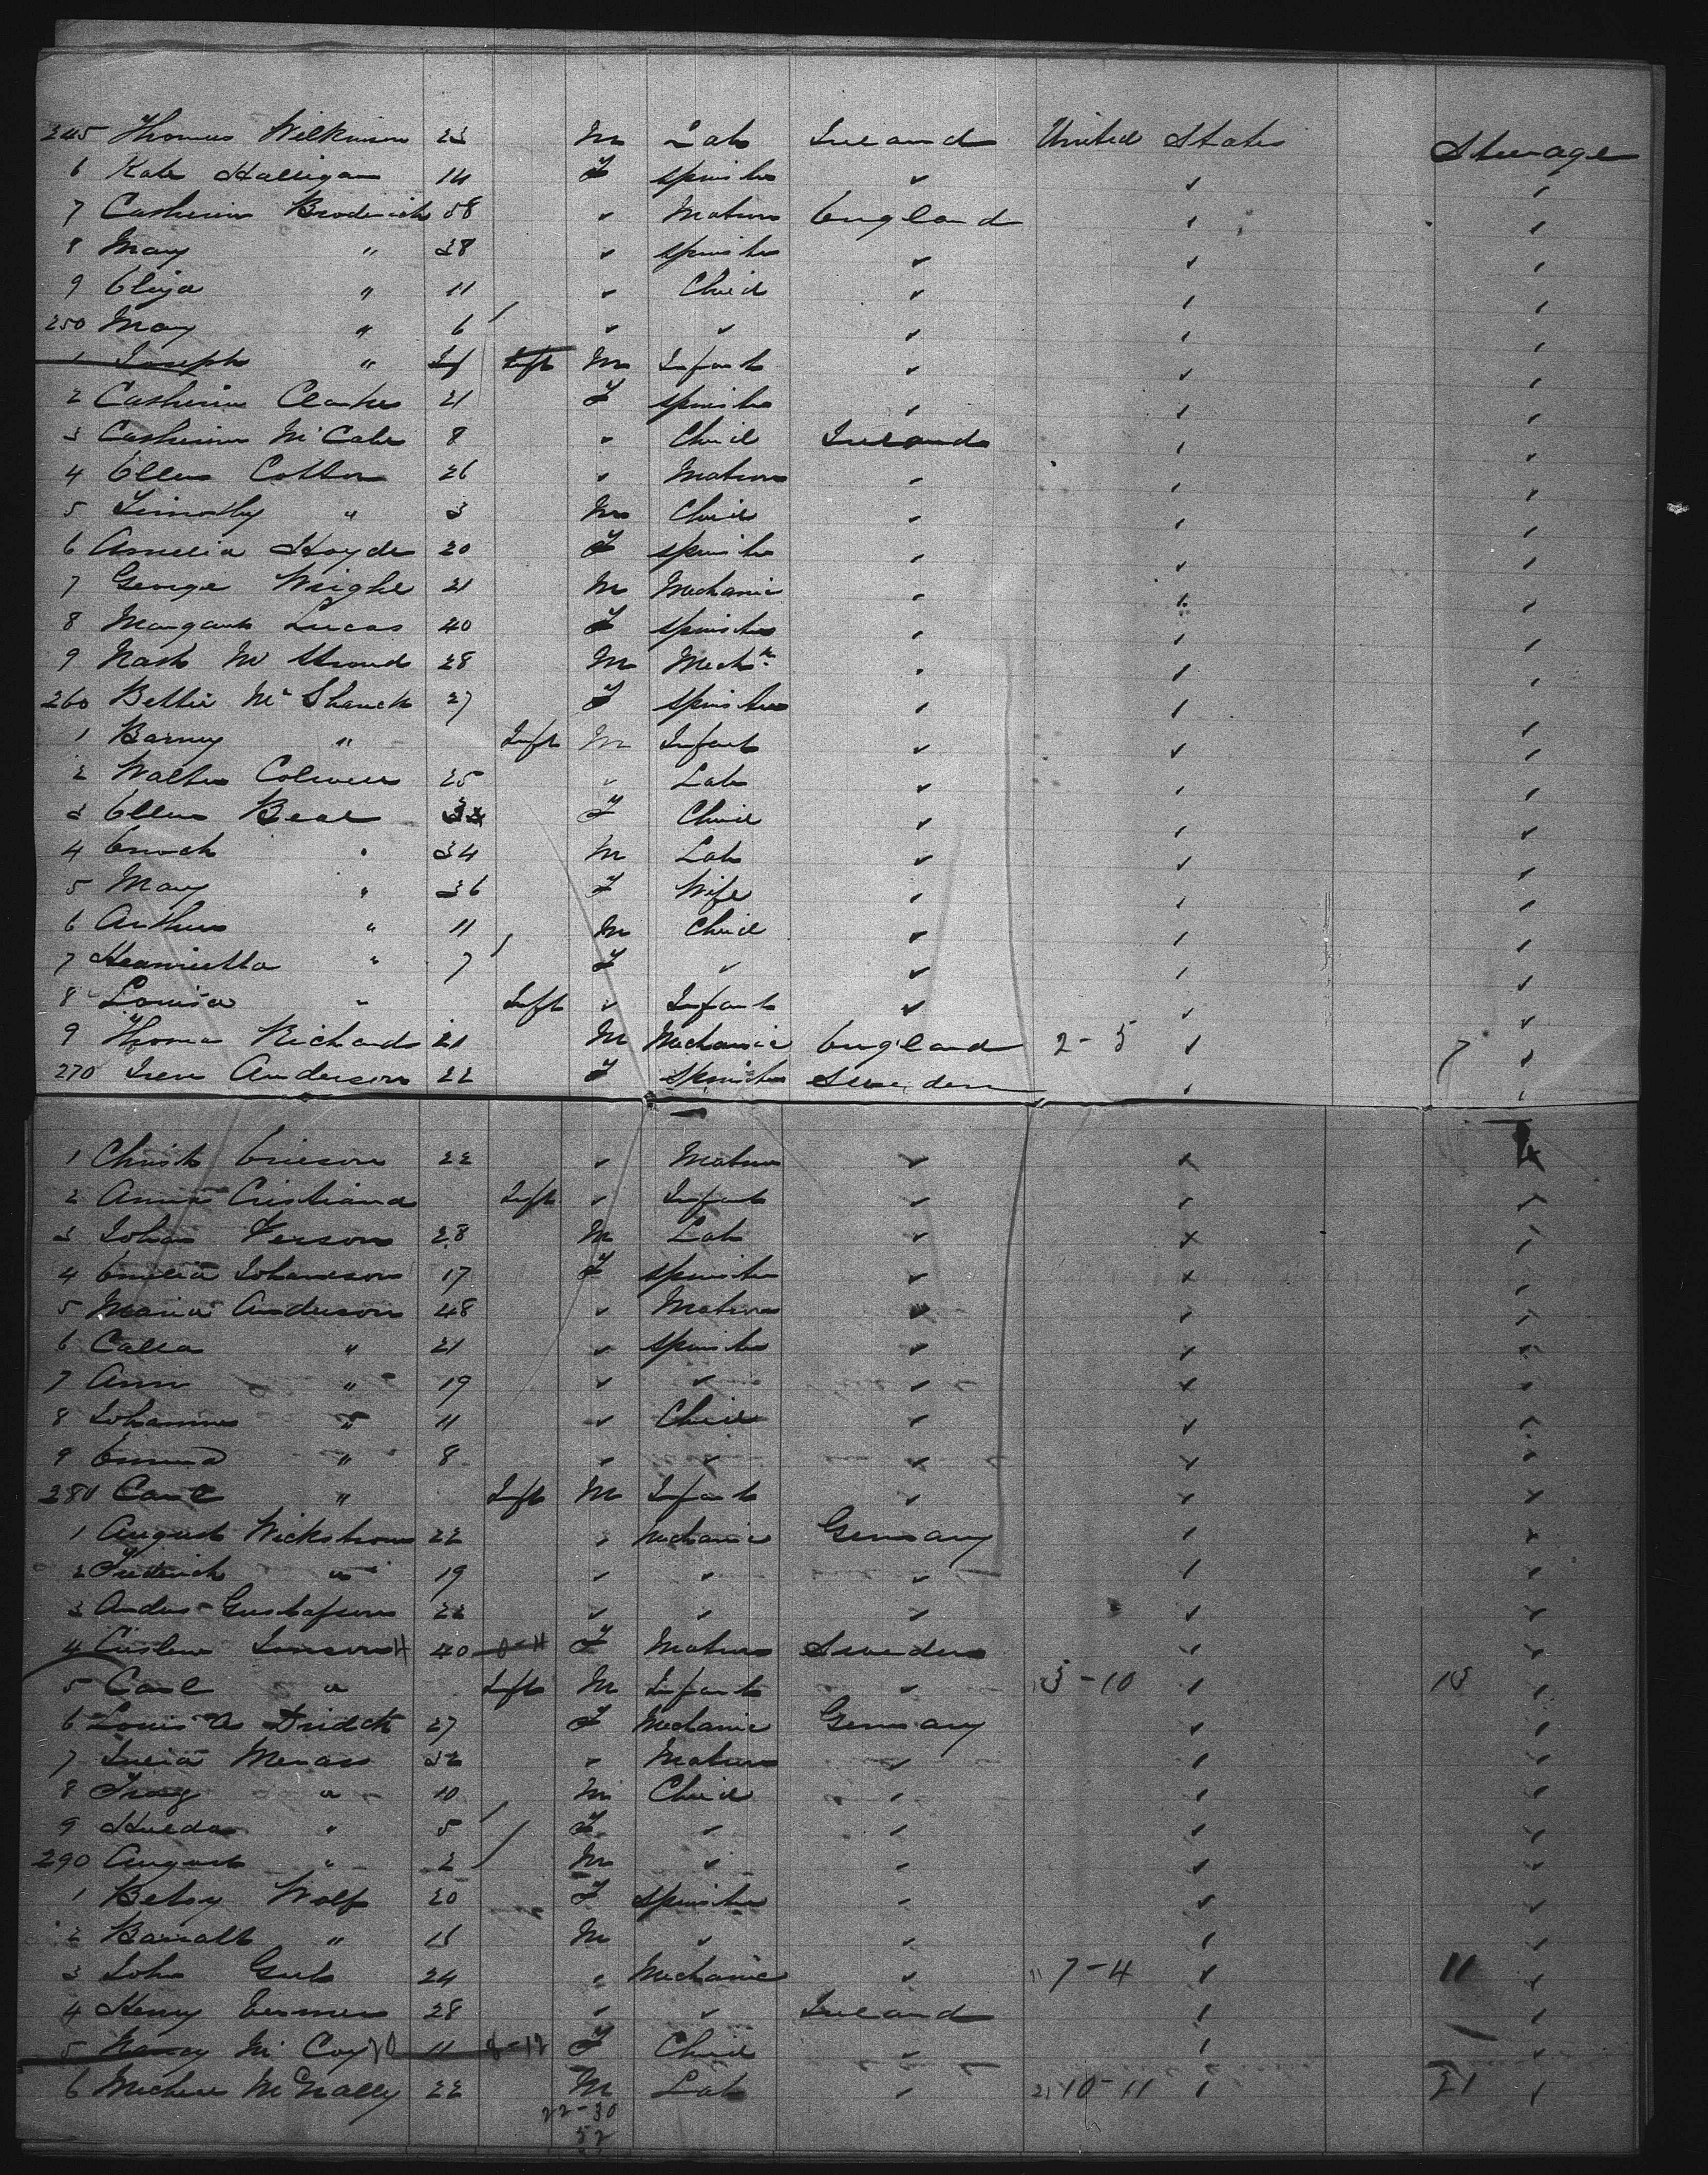 245 Thomas Wilkinson 23 M Lab Ireland United States Steerage
6 Kate Halligan 14 F Spinster ✓ ✓ ✓
7 Catherine Broderick 58 ✓ Matron England ✓ ✓
8 Mary " 38 ✓ Spinster ✓ ✓ ✓
9 Eliza " 11 ✓ Child ✓ ✓ ✓
250 Mary " 6 ✓ ✓ ✓ ✓ ✓
1 Joseph " Inf Inft M Infant ✓ ✓ ✓
2 Catherine Clarke 21 F Spinster ✓ ✓ ✓
3 Catherine McCabe 8 ✓ Child Ireland ✓ ✓
4 Ellen Cotton 26 ✓ Matron ✓ ✓ ✓
5 Timothy " 3 M Child ✓ ✓ ✓
6 Amelia Hoyde 20 F Spinster ✓ ✓ ✓
7 George Wright 21 M Mechanic ✓ ✓ ✓
8 Margaret Lucas 40 F Spinster ✓ ✓ ✓
9 Nash W Stroud 28 M Mech ✓ ✓ ✓
260 Bettie Mc Shanck 27 F Spinster ✓ ✓ ✓
1 Barney " Inft M Infant ✓ ✓ ✓
2 Walter 25 ✓ Lab ✓ ✓ ✓
3 Ellen Beal F Child ✓ ✓ ✓
4 Enoch " 34 M Lab ✓ ✓ ✓
5 Mary " 36 F Wife ✓ ✓ ✓
6 Arthur " 11 M Child ✓ ✓ ✓
7 Heanrietta " 7 F ✓ ✓ ✓ ✓
8 Louisa " Inft ✓ Infant ✓ ✓ ✓
9 Thomas Richards 21 M Mechanic England 2-5 ✓ 7 ✓
270 Anderson 22 F Spinster Sweden ✓ ✓
1 Christ Ericson 22 ✓ Matron ✓ ✓ ✓
2 Anna Cristiana Inft ✓ Infant ✓ ✓ ✓
3 Johan 28 M Lab ✓ ✓ ✓
4 Emelia Johanson 17 F Spinster ✓ ✓ ✓
5 Maria Anderson 48 ✓ Matron ✓ ✓ ✓
6 Calla " 21 ✓ Spinster ✓ ✓ ✓
7 Ann " 19 ✓ ✓ ✓ ✓ ✓
8 Johannes " 11 ✓ Child ✓ ✓ ✓
9 Emma " 8 ✓ ✓ ✓ ✓ ✓
280 Carl " Inft M Infant ✓ ✓ ✓
1 August Wickstrom 22 ✓ Mechanic Germany ✓ ✓
2 Frederick " 19 ✓ ✓ ✓ ✓ ✓
3 Andus Gustafson 22 ✓ ✓ ✓ ✓ ✓
4 40 F Matron Sweden ✓ ✓
5 Carl " Inft M Infant ✓ 3-10 ✓ 13 ✓
6 Louis A 27 F Mechanic Germany ✓ ✓
7 Julia 32 ✓ Matron ✓ ✓ ✓
8 " 10 M Child ✓ ✓ ✓
9 Hulda " 5 F ✓ ✓ ✓ ✓
290 August " 2 M ✓ ✓ ✓ ✓
1 Betsy Wolf 20 F Spinster ✓ ✓ ✓
2 " M ✓ ✓ ✓ ✓
3 John 24 ✓ Mechanic ✓ 7-4 ✓ 11 ✓
4 Henry 28 ✓ ✓ Ireland ✓ ✓
5 Nancy Mc Coy 11 F Child ✓ ✓ ✓
6 McNally 22 M Lab ✓ 10-11 ✓ 21 ✓
22-30
52